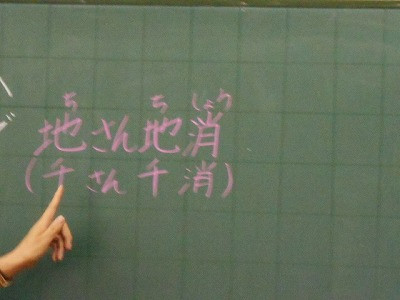 ち ち しょう
地さん地消
(千さん千消)